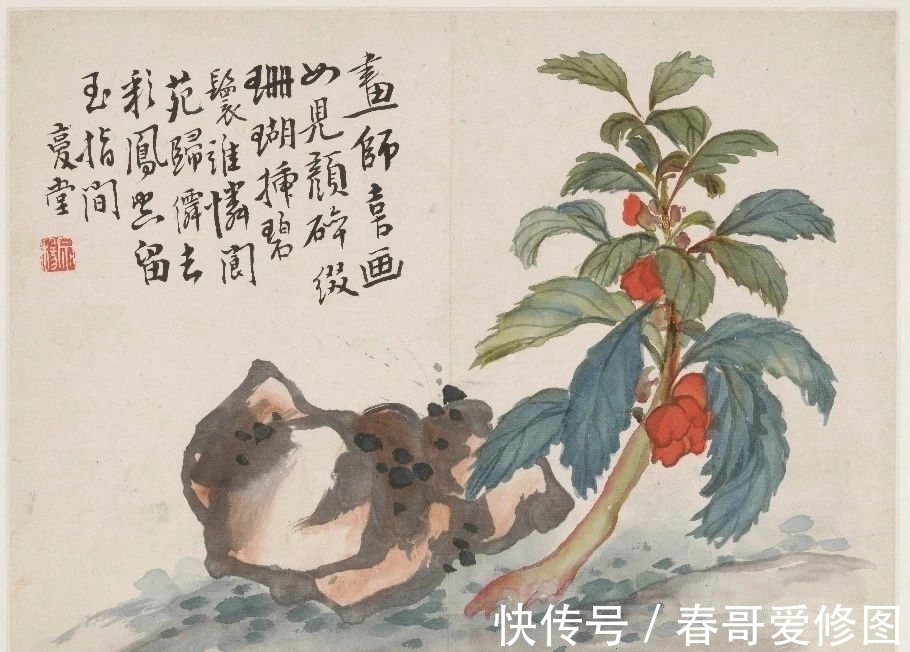 畫師喜画
女兒顔碎綴
珊瑚插碧
鬟誰憐閬
苑歸僊去
彩鳳空留
玉指間
堂
快传号 / 春哥爱修图